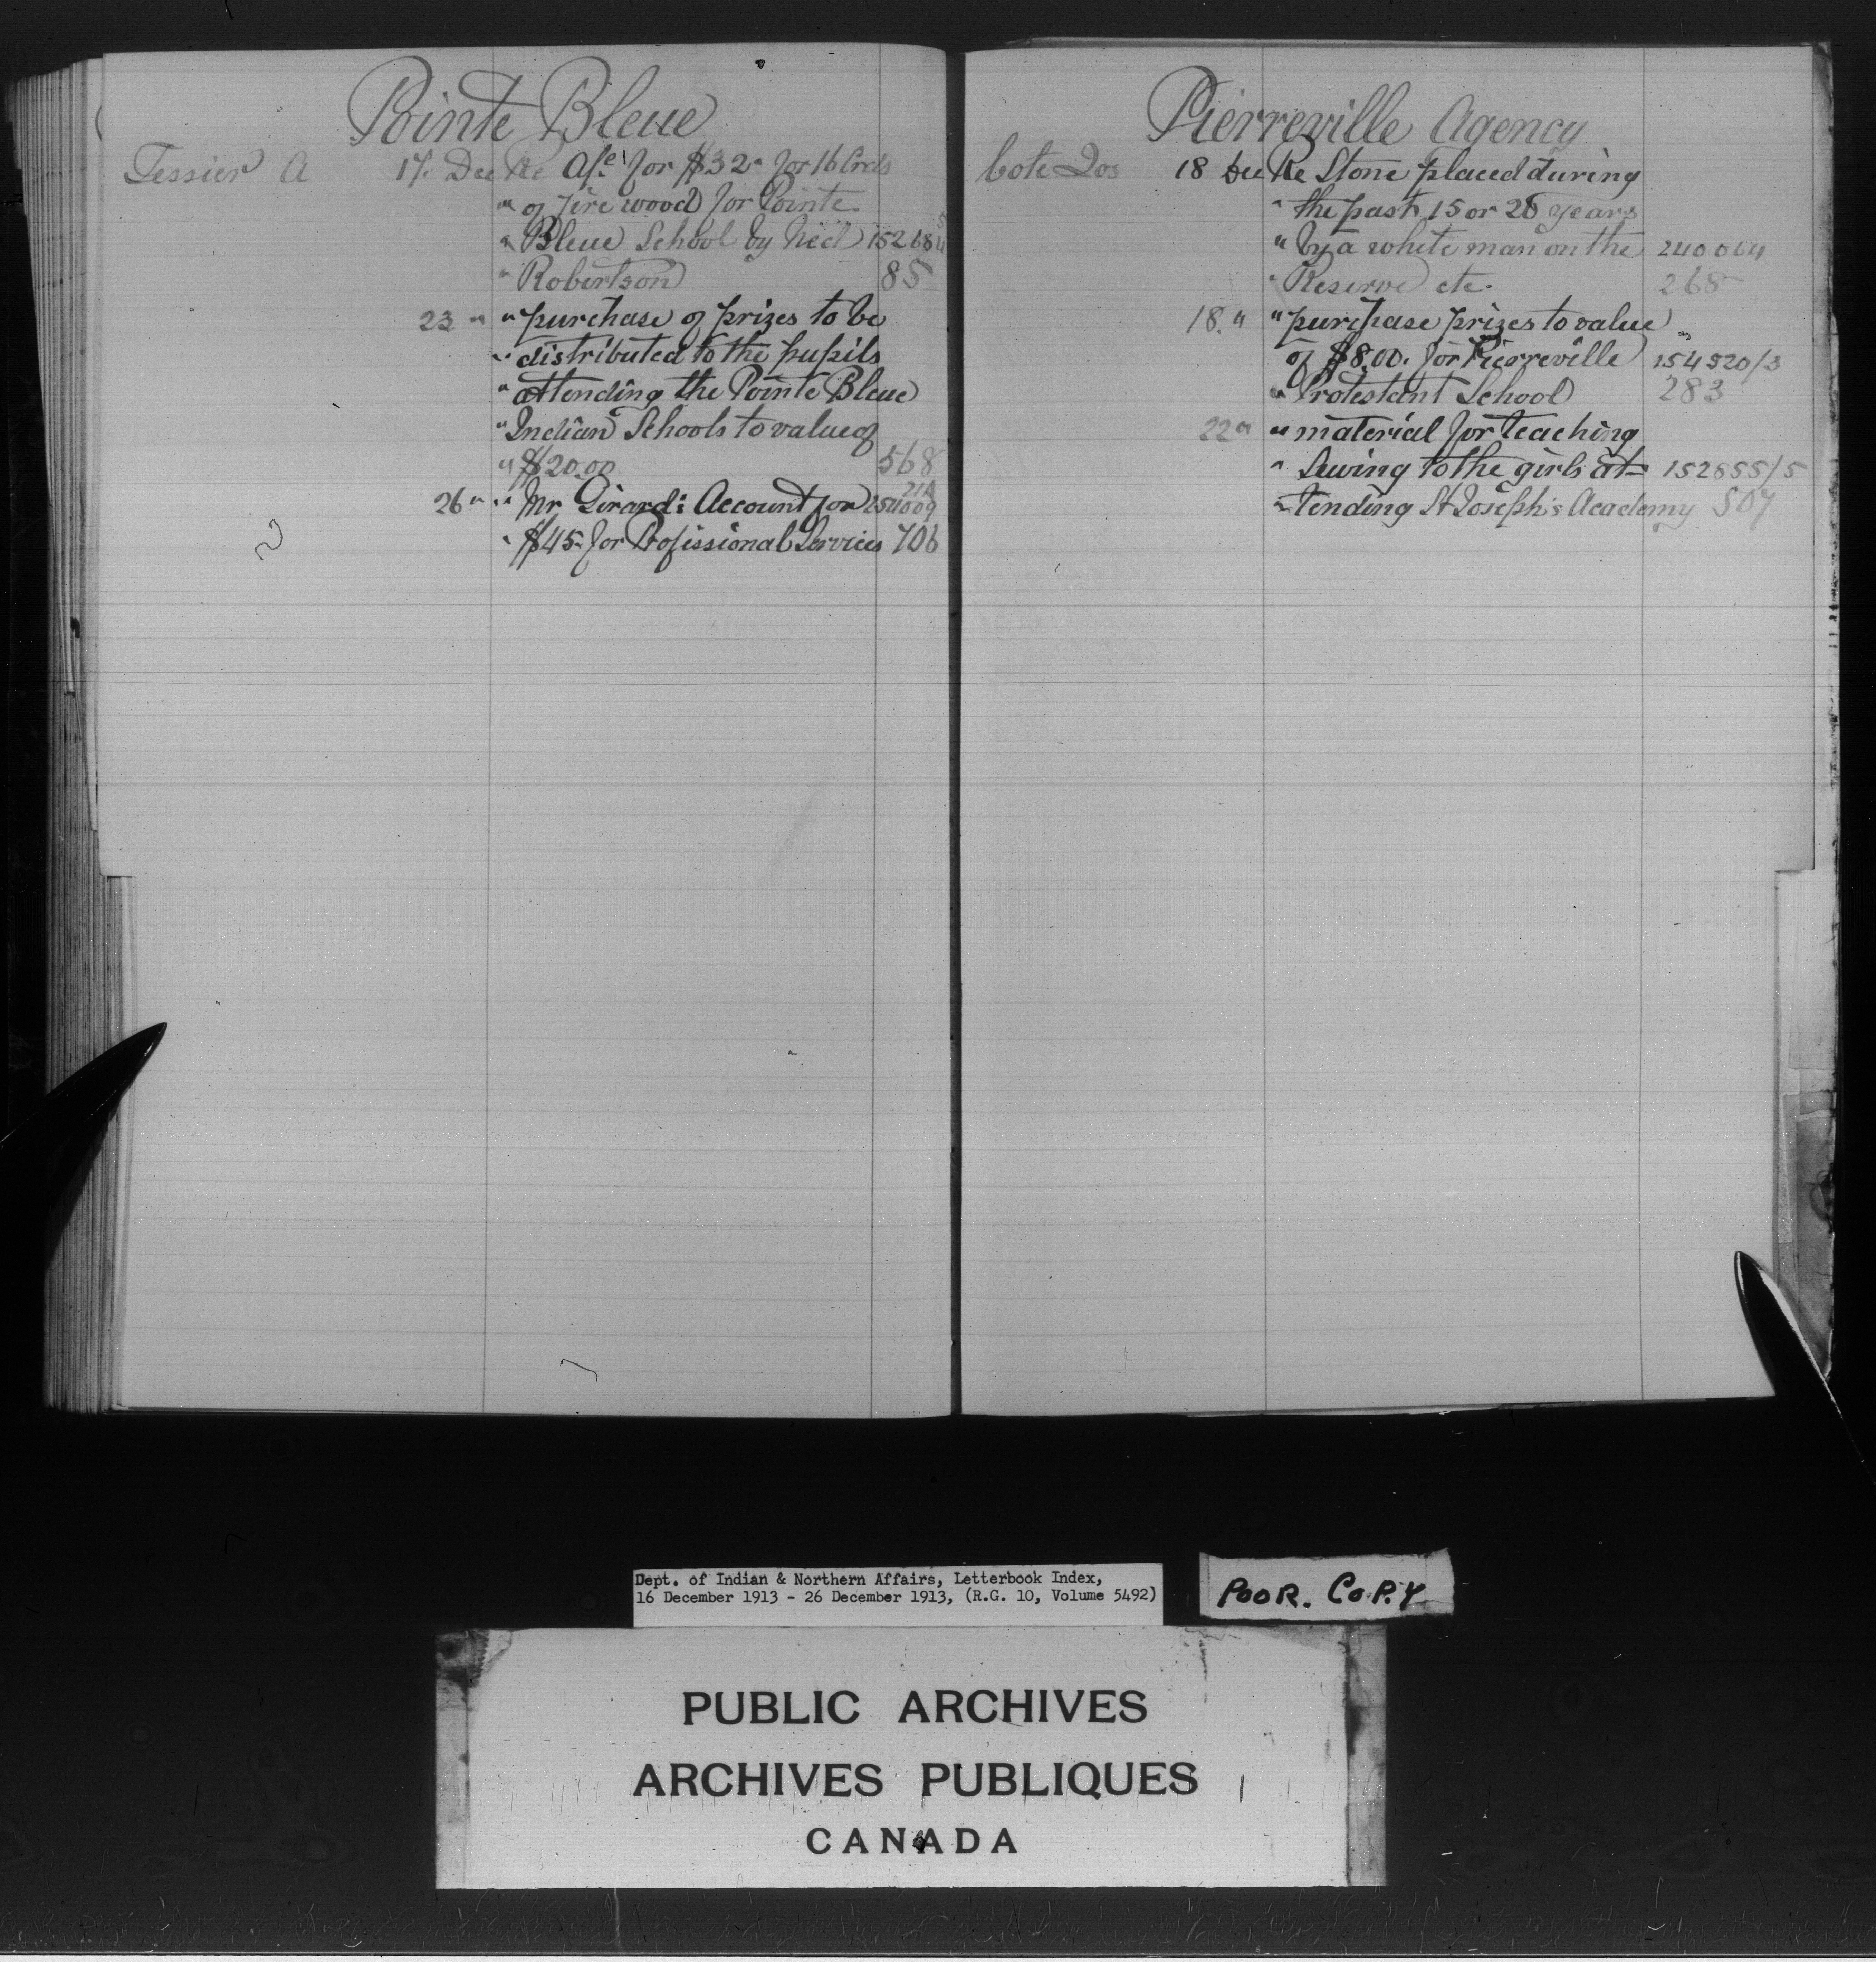 Pointe Bleue
Tessier A 17 Dec Re A/c for $32 for 16 Crds
" of fire wood for Pointe
" Bleue School by Ned 152684
" Robertson 85
23 " " purchase of prizes to be
" distributed to the pupils
" attending the Pointe Bleue
" Indian Schools to value of
" $20.00 568
26 " " Mr Girards Account for
" $45 for Professional Services 706
Pierreville Agency
Cote Jos 18 Dec Re Stone placed during
" the past 15 or 20 years
" by a white man on the 240064
" Reserve etc. 268
18. " " purchase prizes to value
of $8.00. for Pierreville 154520/3
" Protestant School 283
22 " " material for teaching
" Sewing to the girls at= 152855/5
" tending St Joseph's Academy 507
Dept. of Indian & Northern Affairs, Letterbook Index,
16 December 1913 - 26 December 1913, (R.G. 10, Volume 5492)
POOR. COPY
PUBLIC ARCHIVES
ARCHIVES PUBLIQUES
CANADA